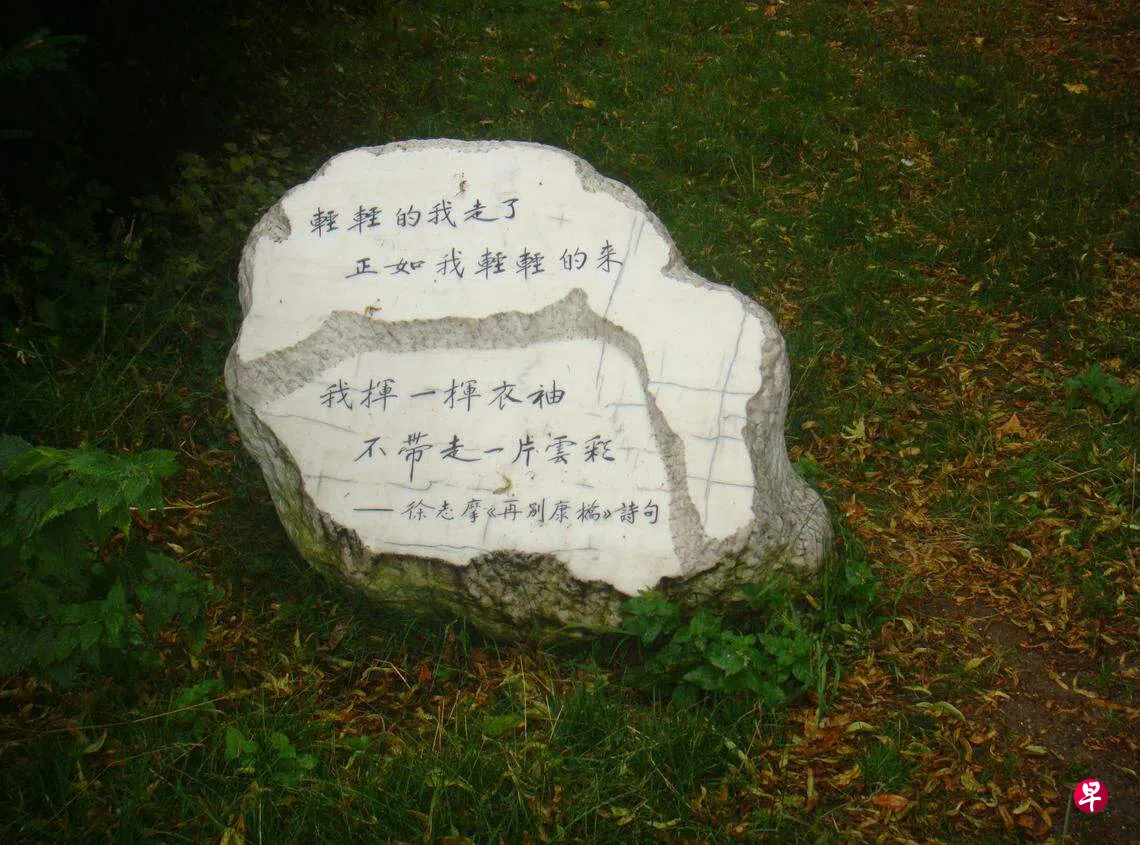 輕輕的我走了
正如我輕輕的来
我揮一揮衣袖
不帶走一片雲彩
——徐志摩《再别康橋》詩句
早